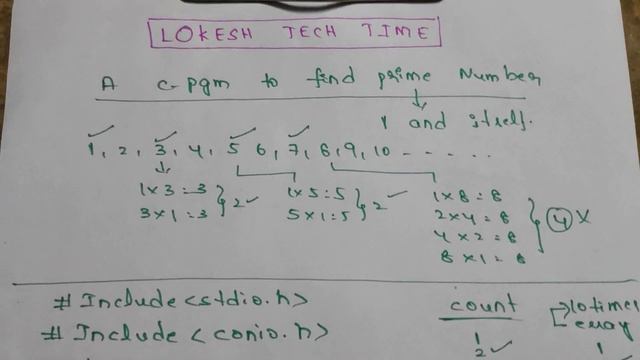 LOKESH TECH TIME
A c-pgm to find prime Number
1 and itself.
1, 2, 3, 4, 5 6, 7, 8, 9, 10 - - - . . .
1x3=3
3x1=3
2✓
1x5=5
5x1=5
2 ✓
1x8=8
2x4=8
4x2=8
8x1=8
4 x
# Include <stdio.h>
# Include <conio.h>
count
1
2 ✓
10 time
1